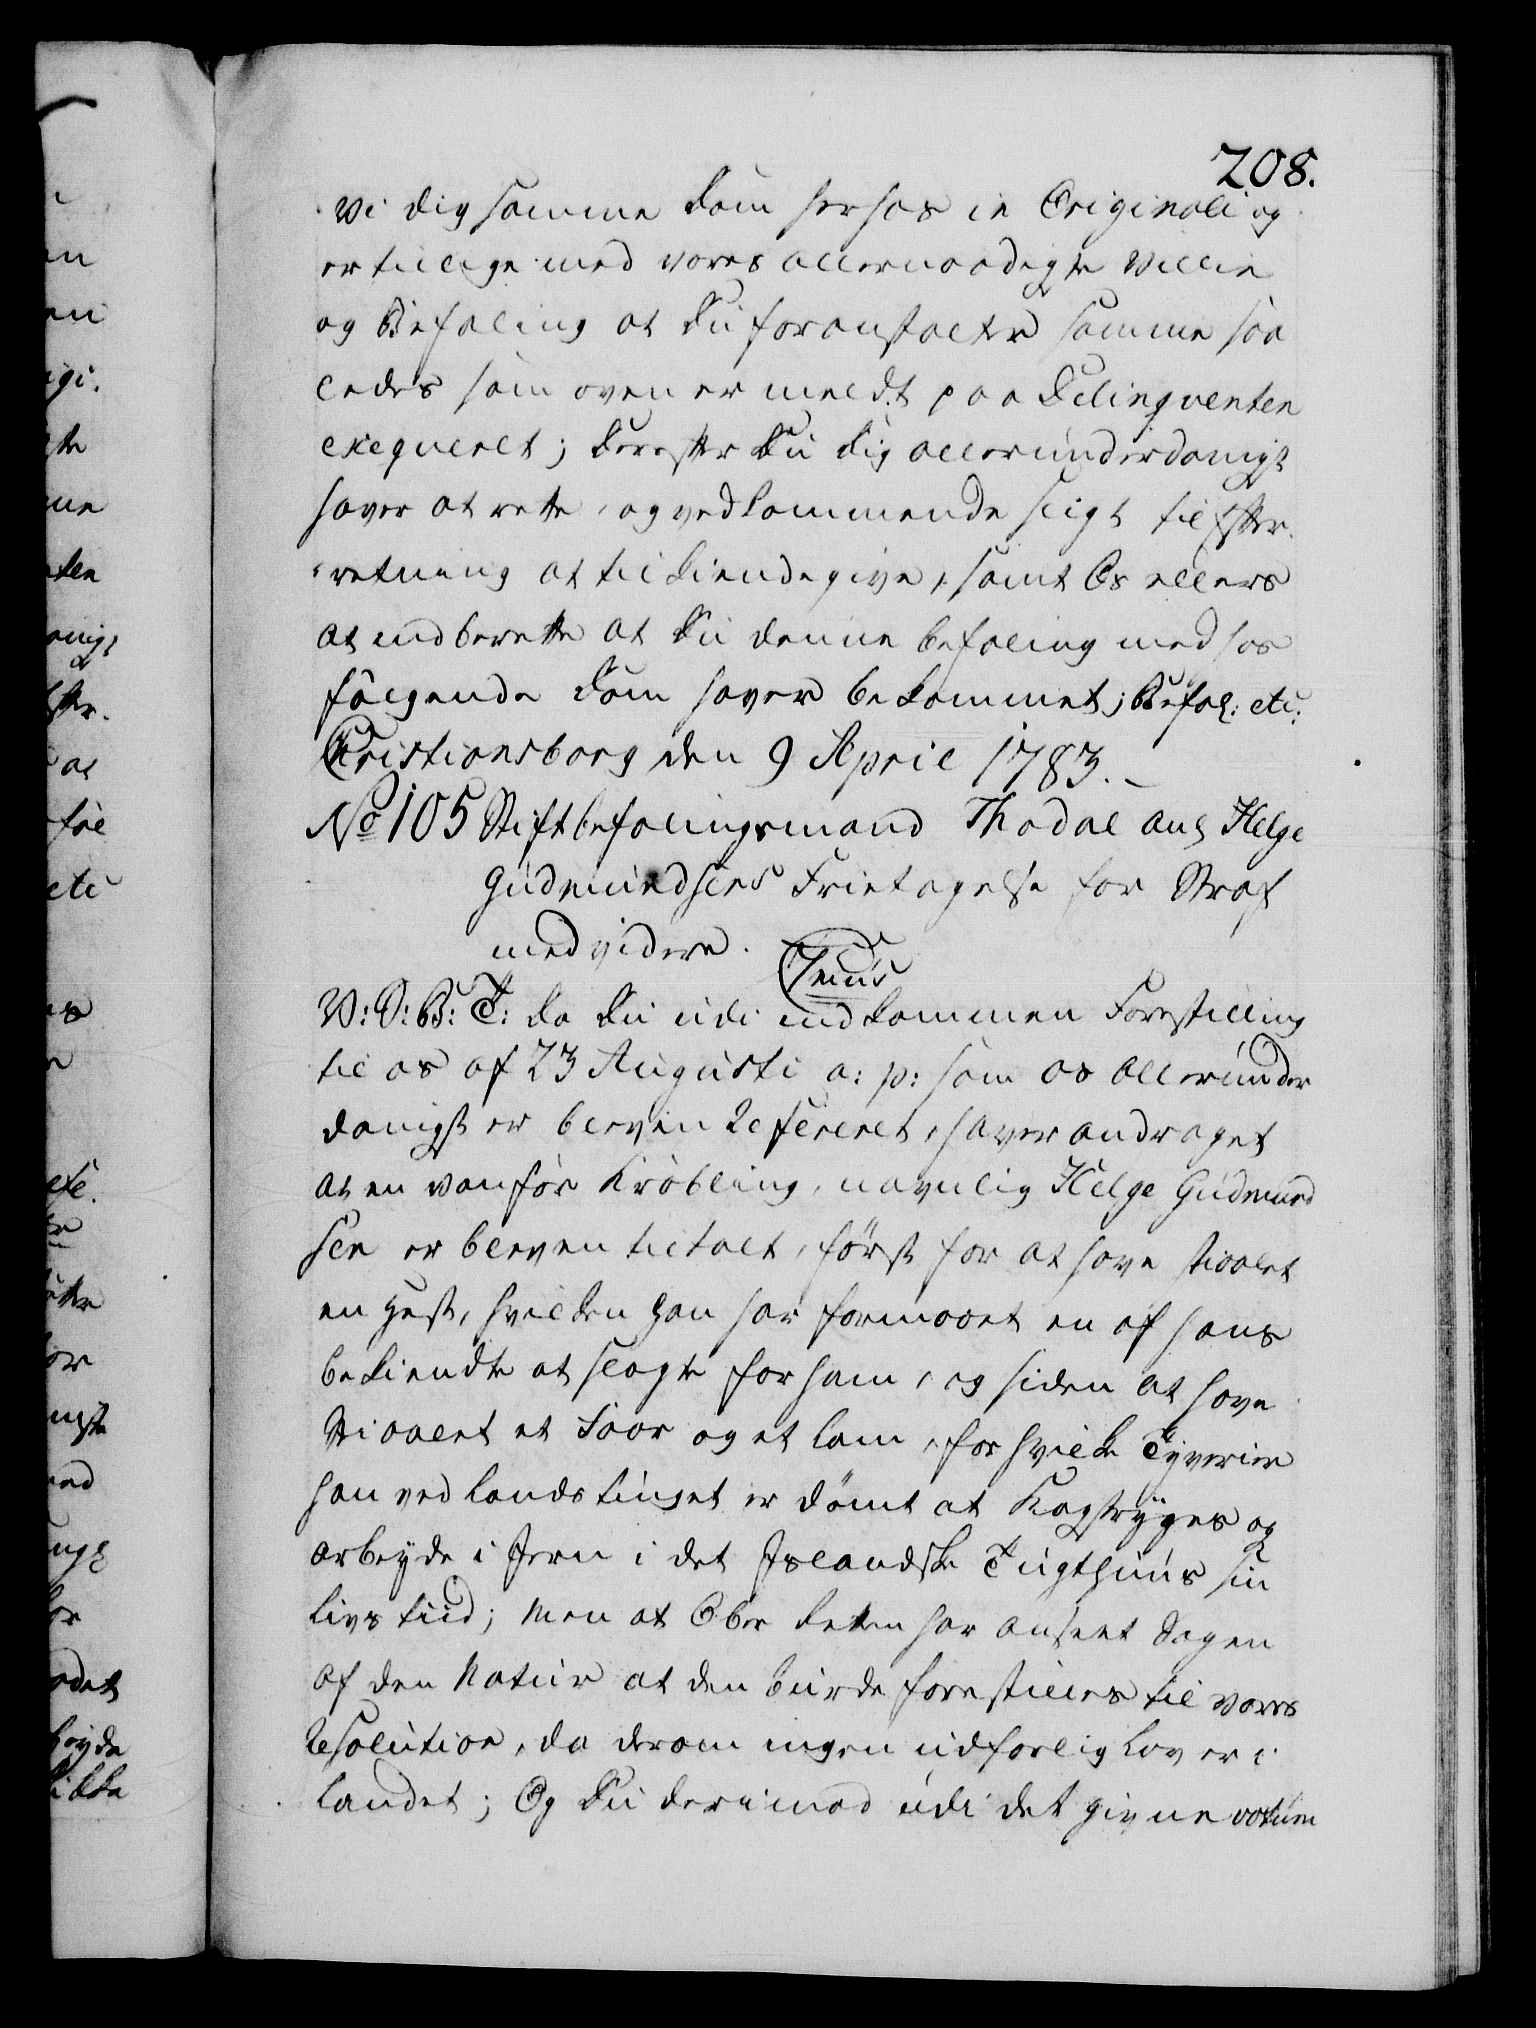 208.
Vi dig samme Dom herhos in Originali og
er tillige med vores allernaadigste Villie
og Befaling at Du foranstalter samme saa
ledes som oven er meldt paa Delinqventen
exeqveret; Derefter Du dig allerunderdanigst
haver at rette, og vedkommende sligt til Efter-
retning at tilkiendegive, samt Os ellers
at indberette at Du denne befaling med hos
følgende Dom haver bekommet; Befal: etc:
Cristiansborg den 9 April 1783.
No 105 Stiftbefalingsmand Thodal ang Helge
Gudmundsens Frietagelse for Straf
med videre.
C7mus
V: S: G: T: da Du udi indkommen Forestilling
til os af 23 Augusti a: p: som os allerunder
danigst er bleven Refereret, haver andraget
at en vanfør Krøbling, navnlig Helge Gudmund
sen er bleven tiltalt, først for at have stiaalet
en Hest, hvilken han har formaaet en af hans
bekiendte at slagte for ham, og siden at have
Stiaalet et Faar og et Lam, for hvilke Tyverier
han ved Landstinget er dømt at Kagstryges og
arbeyde i Jern i det Islandske Tugthuus sin
Livs tiid; Men at Ober Retten har anseet Sagen
af den Natur at den burde forestilles til vores
Resolution, da derom ingen udførlig Lov er i
Landet; Og Du derimod udi det givne votum